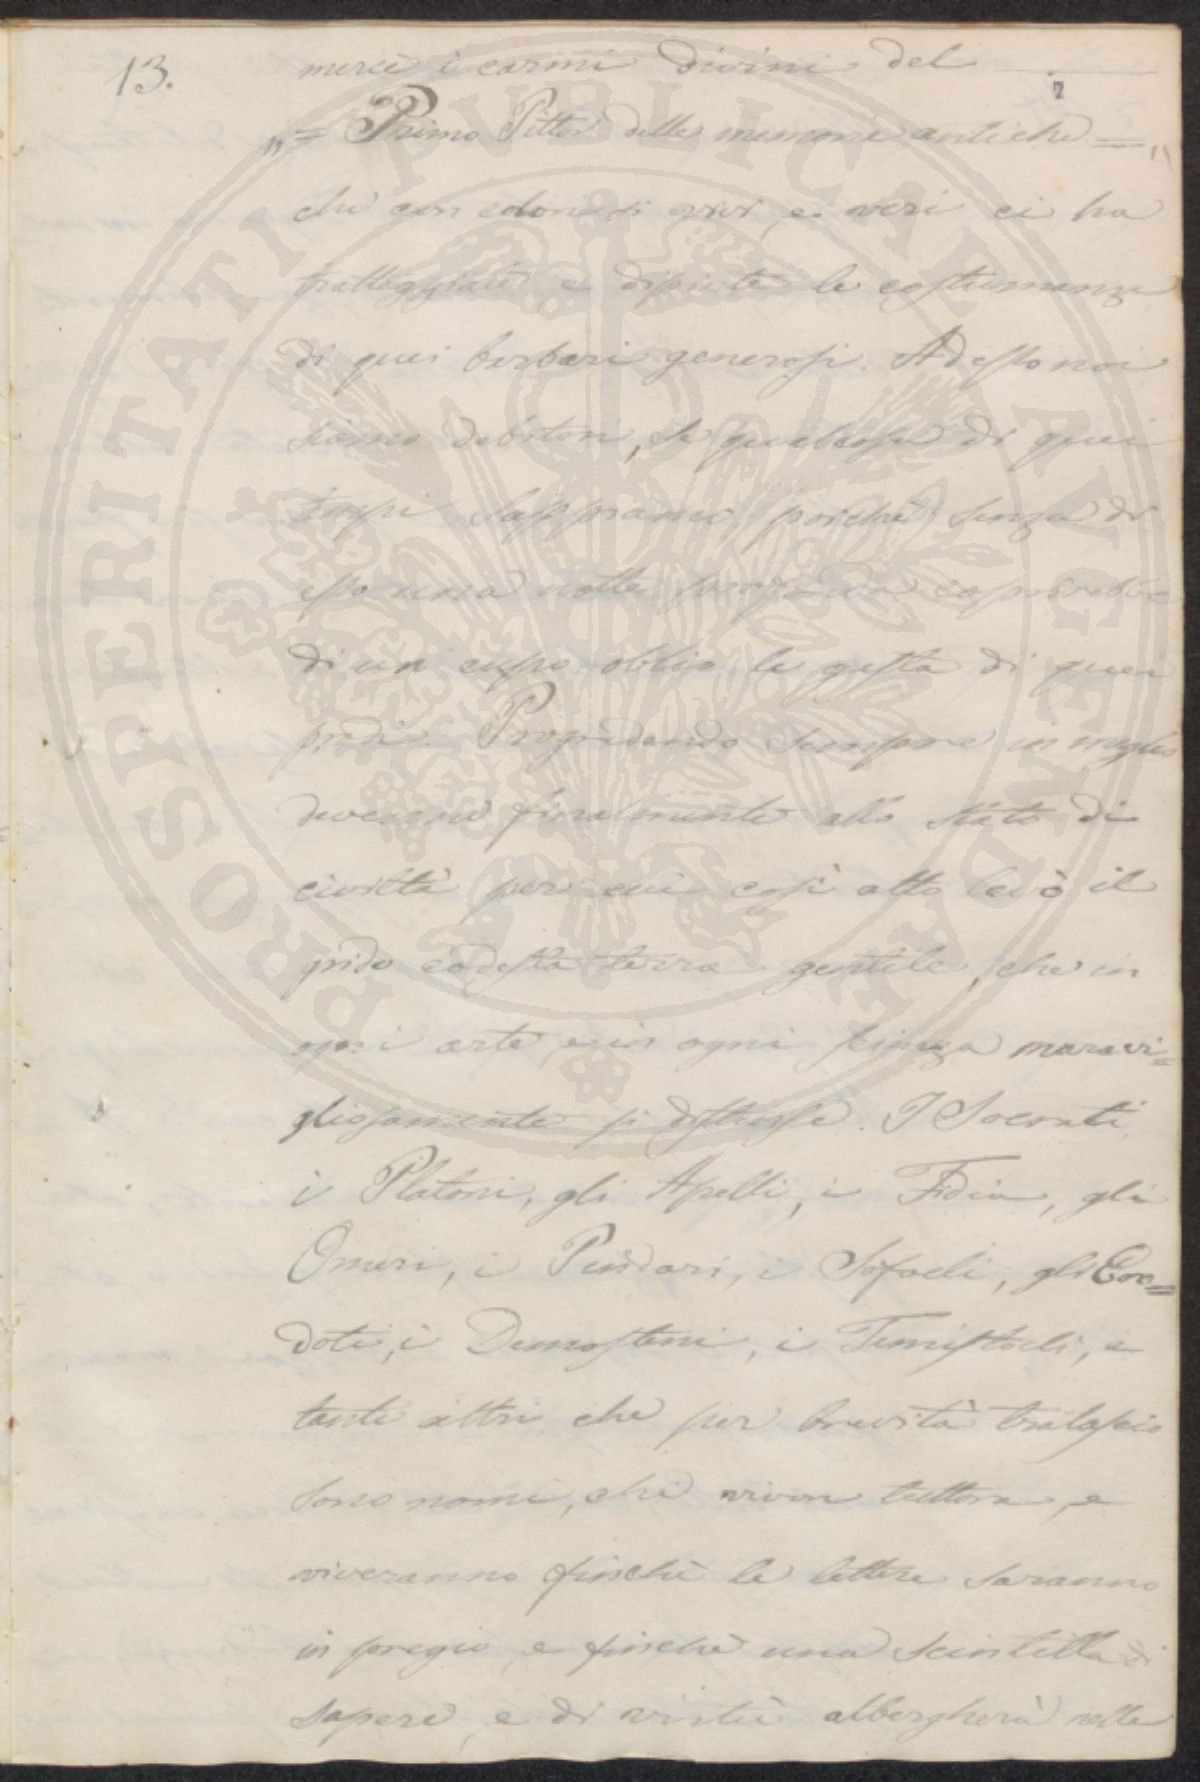 13.
mercè i carmi divini del
7
„= Primo Pittor delle memorie antiche =„
che con colori si vivi, e veri ci ha
tratteggiate e dipinte le costumanze
di quei barbari generosi. Ad esso noi
siamo debitori, se qualcosa di quei
tempi sappiamo, poichè senza di
esso una notte profonda coprirebbe
di un cupo oblio le gesta di quei
prodi. Progredendo sempre in meglio
devenne finalmente allo stato di
civiltà per cui così alto levò il
grido codesta terra gentile, che in
ogni arte, e in ogni scienza maravi=
gliosamente si distinse. I Socrati
i Platoni, gli Apelli, i Fidia, gli
Omeri, i Pindari, i Sofocli, gli Ero=
doti, i Demosteni, i Temistocli, e
tanti altri che per brevità tralascio
sono nomi, che vivon tuttora, e
viveranno finchè le lettere saranno
in pregio, e finchè una scintilla di
sapere, e di virtù albergherà nelle
PROSPERITATI PVBLICAE AVGENDAE